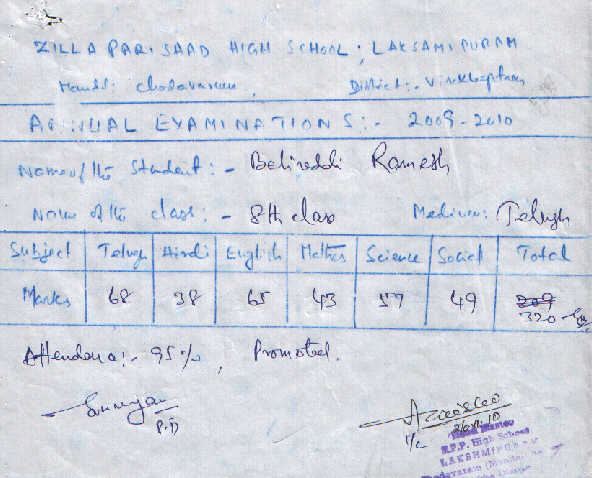 ZILLA PARISAAD HIGH SCHOOL, LAKSAMIPURAM
Mandl: chodavaram, District:- Visakhaptnam
ANNUAL EXAMINATIONS:- 2009-2010
Name of the Student:- Botireddi Ramesh
Name of the class:- 8th class Medium: Telugu
Subject Telugu Hindi English Mathes Science Social Total
Marks 68 38 65 43 57 49 320
Attendance:- 95%, Promoted.
P.D
I/c
Z.P.P. High School
LAKSHMIPUR